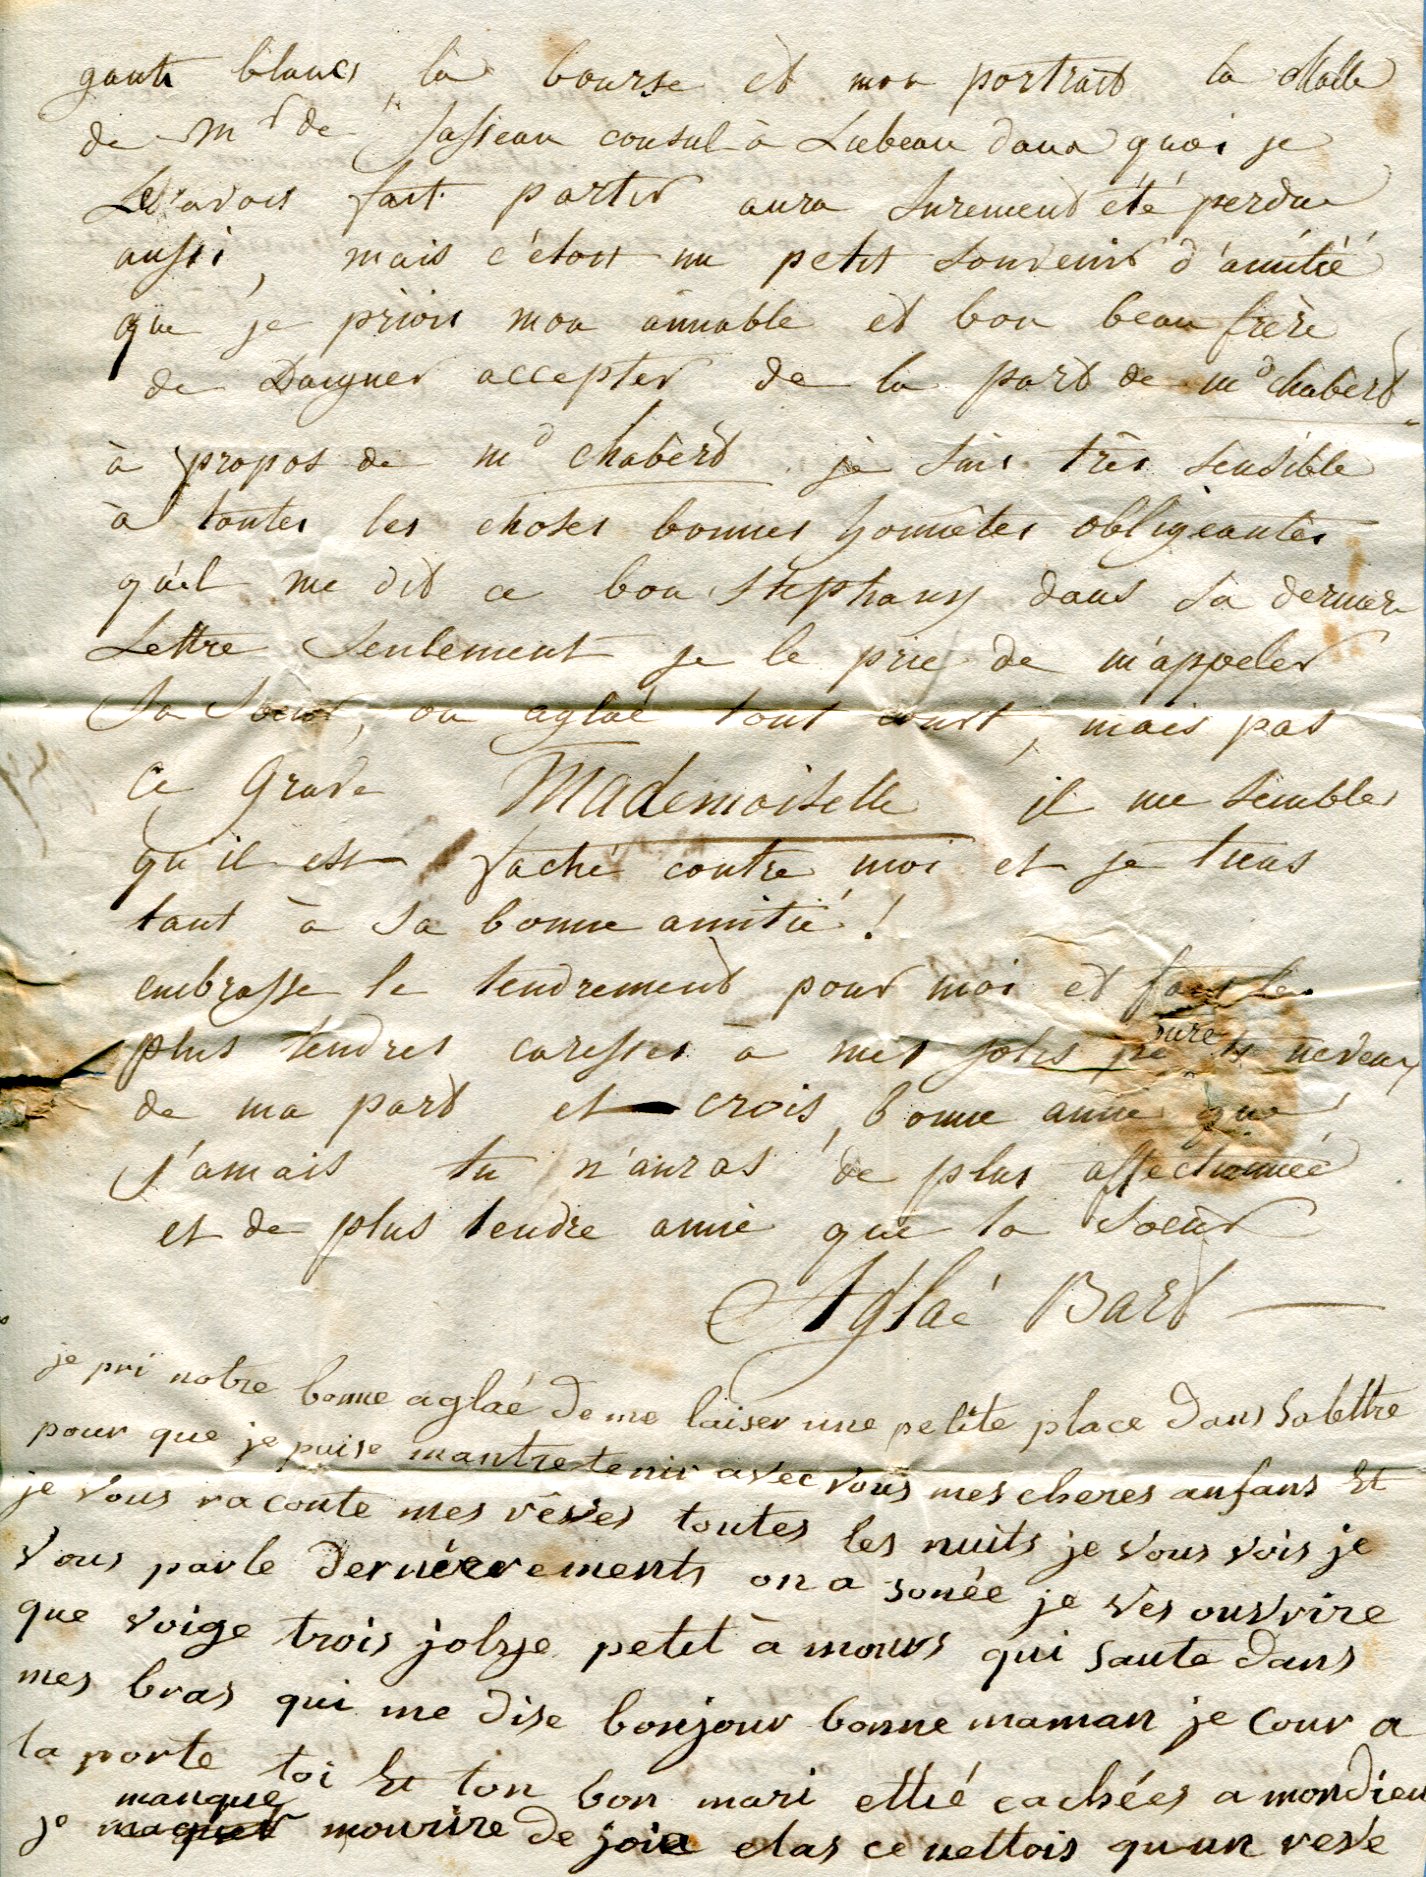 gants blancs, la bourse et mon portrait la Malle
de Mr de Jasseau consul à Lubeau dans quoi je
L'avois fait partir aura surement été perdue
aussi, mais c'étoit un petit souvenir d'amitié
que je priois mon aimable et bon beau frère
de Daigner accepter de la part de md chabert
à propos de md chabèrt je suis très sensible
à toutes les choses bonnes honnêtes obligeantes
qu'el me dit ce bon stephany dans sa derniere
Lettre seulement je le prie de m'appeler
sa soeur, ou aglaé tout court, mais pas
Ce Grave Mademoiselle il me semble
qu'il est faché contre moi et je tiens
tant à sa bonne amitié !
embrasse le tendrement pour moi et fais les
plus tendres caresses à mes jolis neveux
de ma part et crois, bonne amie que
j'amais tu n'auras de plus affectionnée
et de plus tendre amie que ta soeur
Aglaé Bart
je pri notre bonne aglaé de me laiser une petite place dans sa lettre
pour que je puise mantretenir avec vous mes cheres anfans Et
je vous raconte mes rêves toutes les nuits je vous vois je
vous parle dernierements on a sonée je ves ouvrire
que voige trois jolye petit à mours qui saute dans
mes bras qui me dise bonjour bonne maman je cour a
la porte toi Et ton bon mari ettié cachées a mondieu
manque
je mourire de joie elas ce nettois qu-un reve